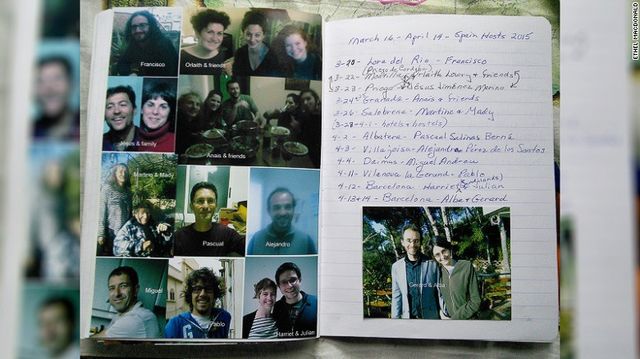 Francisco
Orlaith & friends
Jesus & family
Anais & friends
Martine & Mady
Pascual
Alejandro
Miguel
Pablo
Harriet & Julian
March 16 - April 19 - Spain Hosts 2015
3-20 - Lora del Rio - Francisco
(Priego de Cordoba)
3-22 - Montilla - Orlaith Lowry & friends
3-23 - Priego - Jesus Jimenez Merino
3-24 - Granada - Anais & friends
3-26 - Salobrena - Martine & Mady
(3-28-4-1 - hotels & hostels)
4-2 - Albatera - Pascual Salinas Berná
4-3 - Villajoisa - Alejandro Pérez de los Santos
4-4 - Daimus - Miguel Andreu
4-11 - Vilanova la Gerund - Pablo
4-12 - Barcelona - Harriet & Julian
4-13+14 - Barcelona - Alba & Gerard
Gerard & Alba
ETHEL MACDONALD